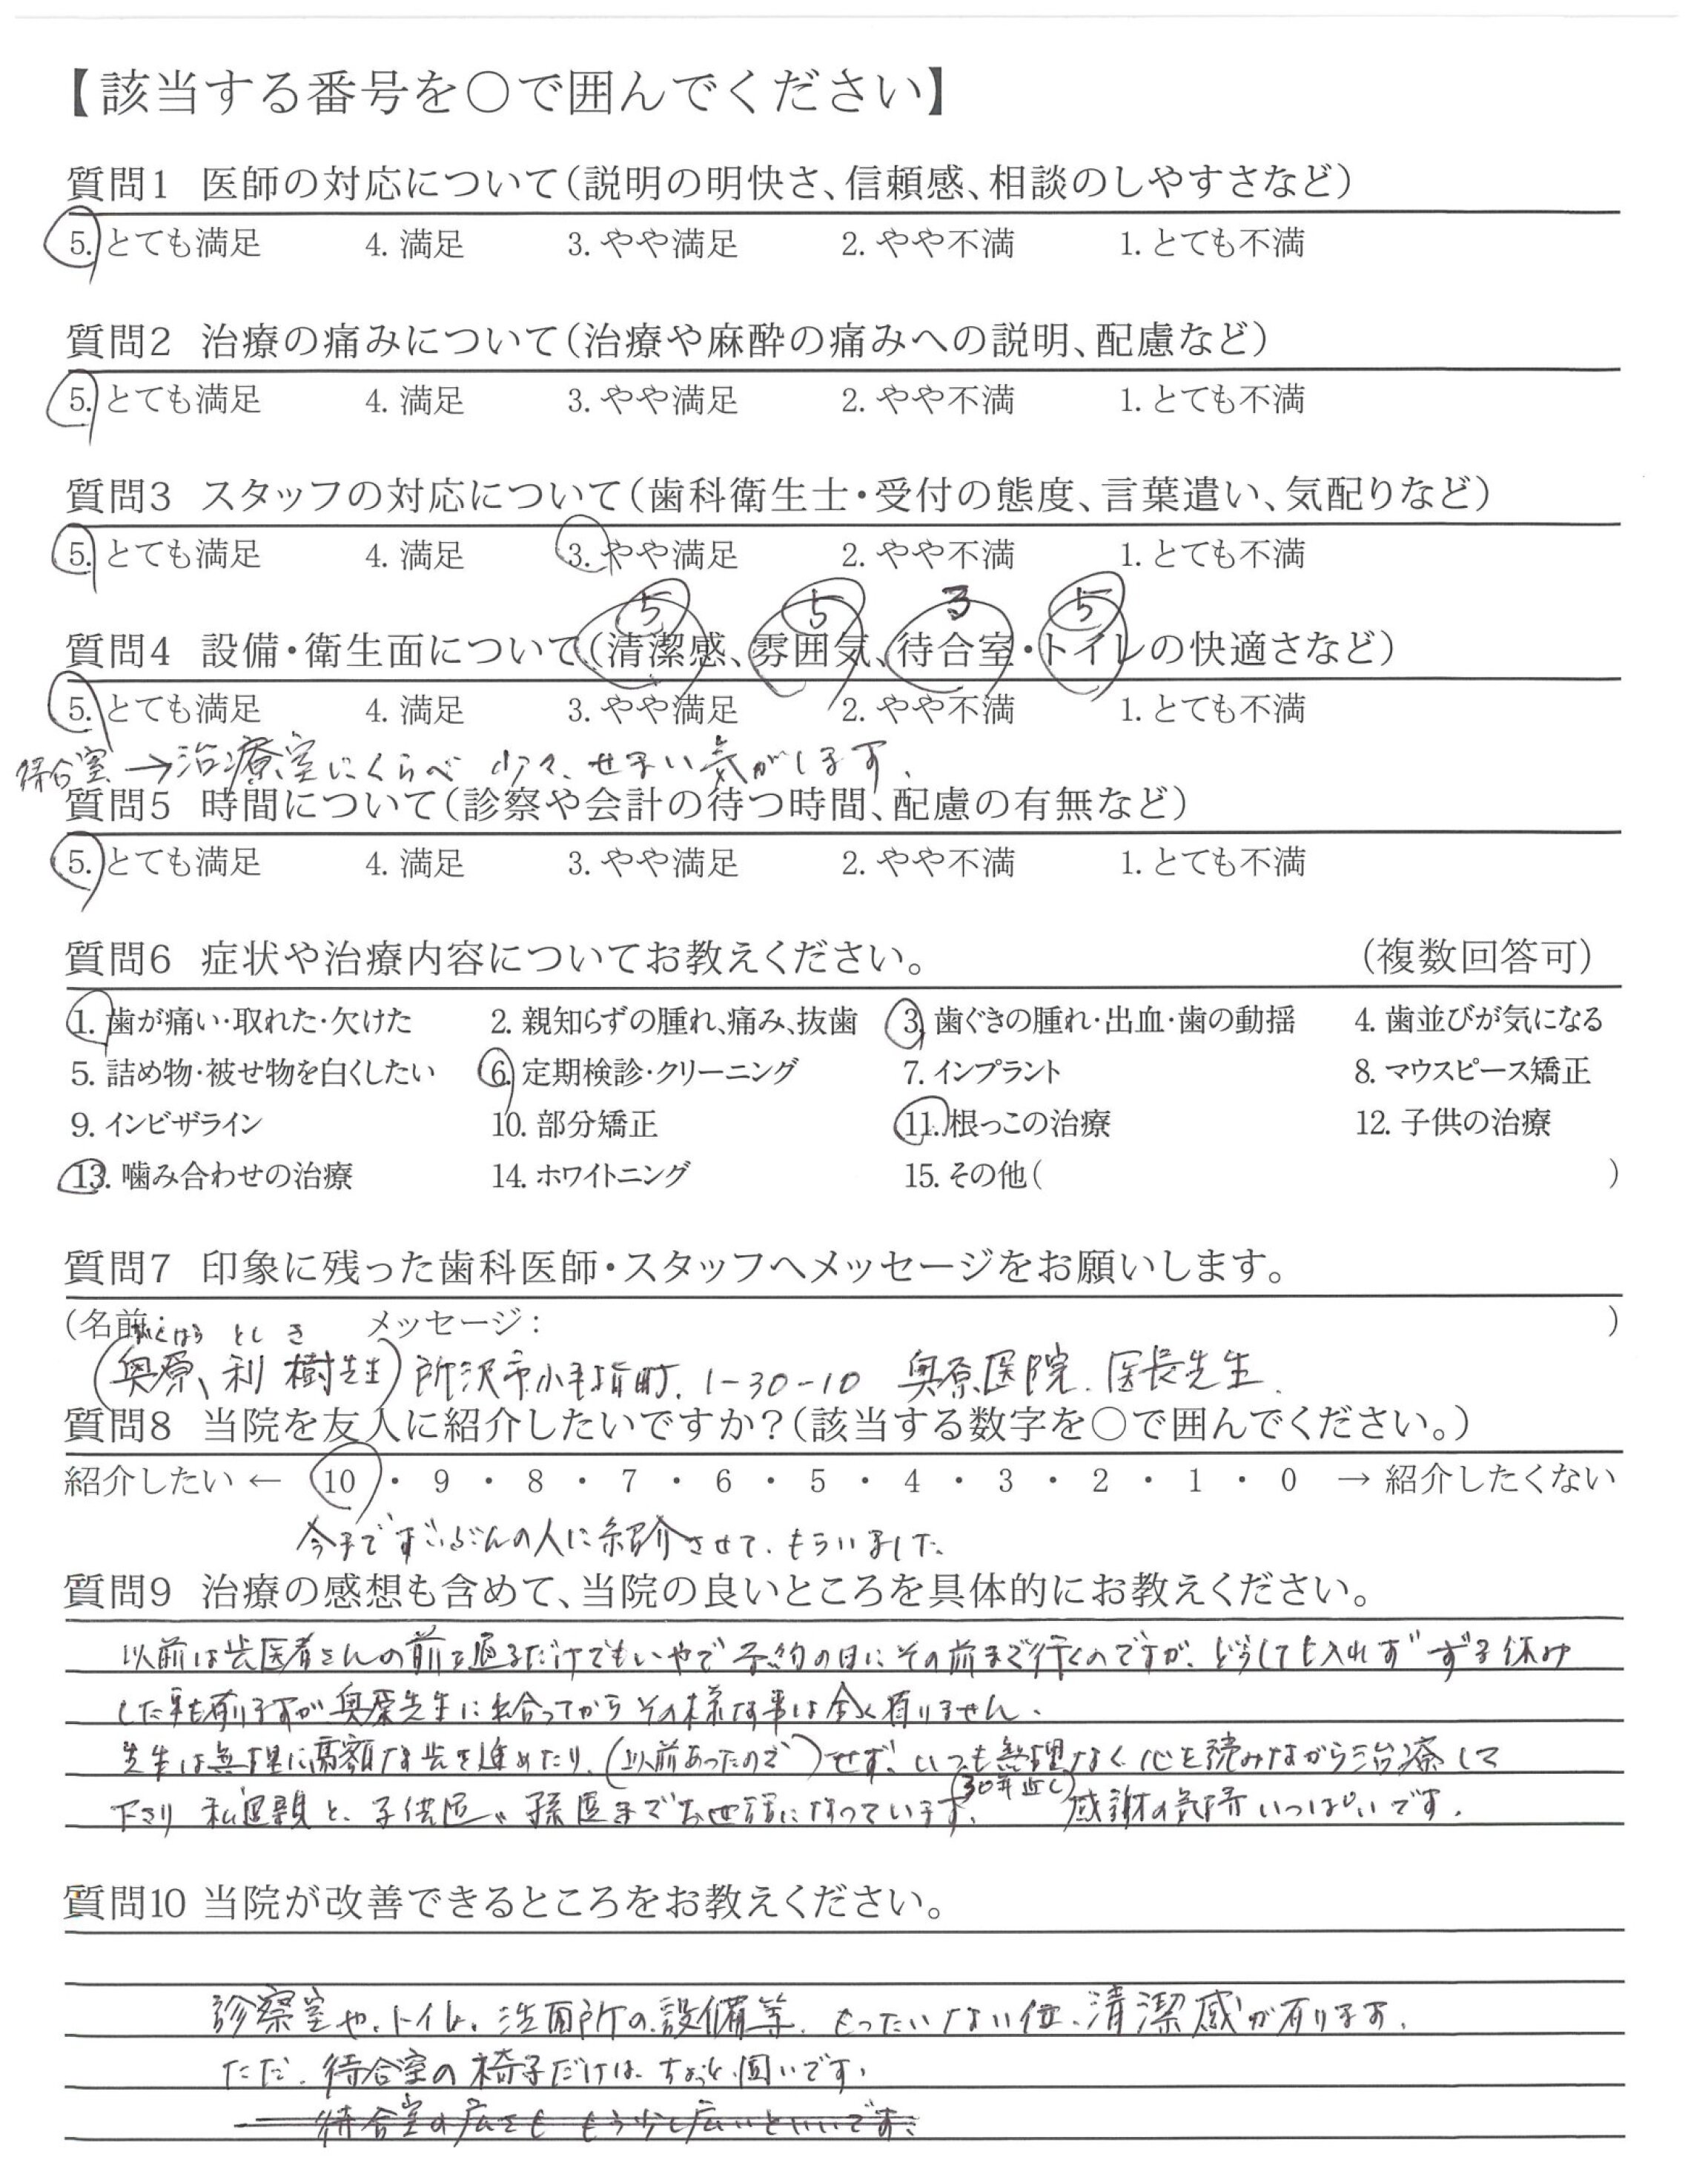 【該当する番号を○で囲んでください】
質問1 医師の対応について(説明の明快さ、信頼感、相談のしやすさなど)
5. とても満足 4. 満足 3. やや満足 2. やや不満 1. とても不満
質問2 治療の痛みについて(治療や麻酔の痛みへの説明、配慮など)
5. とても満足 4. 満足 3. やや満足 2. やや不満 1. とても不満
質問3 スタッフの対応について(歯科衛生士・受付の態度、言葉遣い、気配りなど)
5. とても満足 4. 満足 3. やや満足 2. やや不満 1. とても不満
5 5 3 5
質問4 設備・衛生面について(清潔感、雰囲気、待合室・トイレの快適さなど)
5. とても満足 4. 満足 3. やや満足 2. やや不満 1. とても不満
待合室→治療室にくらべ 少々、せまい気がします。
質問5 時間について(診察や会計の待つ時間、配慮の有無など)
5. とても満足 4. 満足 3. やや満足 2. やや不満 1. とても不満
質問6 症状や治療内容についてお教えください。 (複数回答可)
1. 歯が痛い・取れた・欠けた 2. 親知らずの腫れ、痛み、抜歯 3. 歯ぐきの腫れ・出血・歯の動揺 4. 歯並びが気になる
5. 詰め物・被せ物を白くしたい 6. 定期検診・クリーニング 7. インプラント 8. マウスピース矯正
9. インビザライン 10. 部分矯正 11. 根っこの治療 12. 子供の治療
13. 噛み合わせの治療 14. ホワイトニング 15. その他( )
質問7 印象に残った歯科医師・スタッフへメッセージをお願いします。
(名前: メッセージ: )
おくはら としき
(奥原、利樹先生) 所沢市小手指町. 1-30-10 奥原医院. 医長先生.
質問8 当院を友人に紹介したいですか?(該当する数字を○で囲んでください。)
紹介したい ← 10 ・ 9 ・ 8 ・ 7 ・ 6 ・ 5 ・ 4 ・ 3 ・ 2 ・ 1 ・ 0 → 紹介したくない
今まですいぶんの人に紹介させて、もらいました
質問9 治療の感想も含めて、当院の良いところを具体的にお教えください。
以前は歯医者さんの前を通るだけでもいやで 予約の日にその前まで行くのですが、どうしても入れず ずる休み
した事も有りますが奥原先生に出合ってからその様な事は全く有りません、
先生は無理に高額な歯を進めたり、(以前あったので)せず、いつも無理なく心を読みながら治療して
下さり 私達親と、子供達、孫達までお世話になっています、(30年近く) 感謝の気持いっぱいです.
質問10 当院が改善できるところをお教えください。
診察室や、トイレ、洗面所の設備等、もったいない位、清潔感が有ります.
ただ、待合室の椅子だけは、ちょっと、固いです、
待合室の広さも もう少し広いといいです.